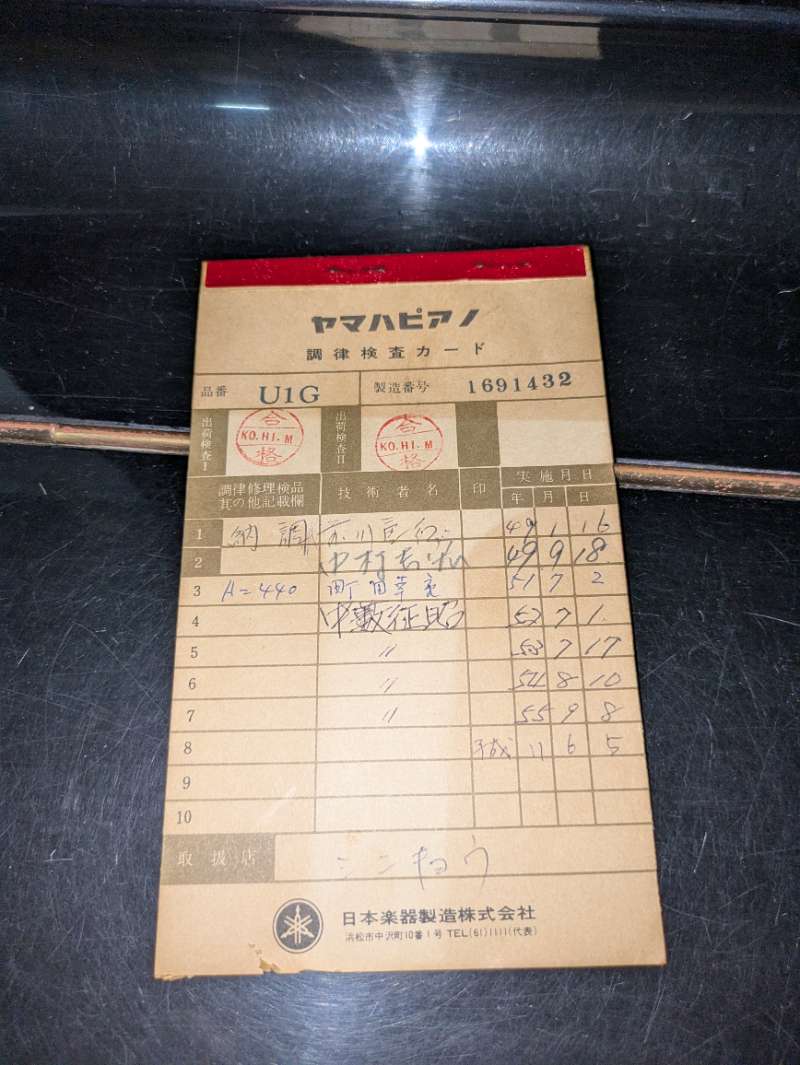 ヤマハピアノ
調律検査カード
品番 U1G 製造番号 1691432
出荷検査I 合格 KO.HI.M 出荷検査II 合格 KO.HI.M
調律修理検品其の他記載欄 技術者名 印 実施月日
年 月 日
1 納調 49 1 16
2 中村 49 9 18
3 A=440 町田幸亮 51 7 2
4 中藪征昭 52 7 1
5 〃 53 7 17
6 〃 54 8 10
7 〃 55 9 8
8 平成 11 6 5
9
10
取扱店 シンキョウ
日本楽器製造株式会社
浜松市中沢町10番1号 TEL(61)1111(代表)